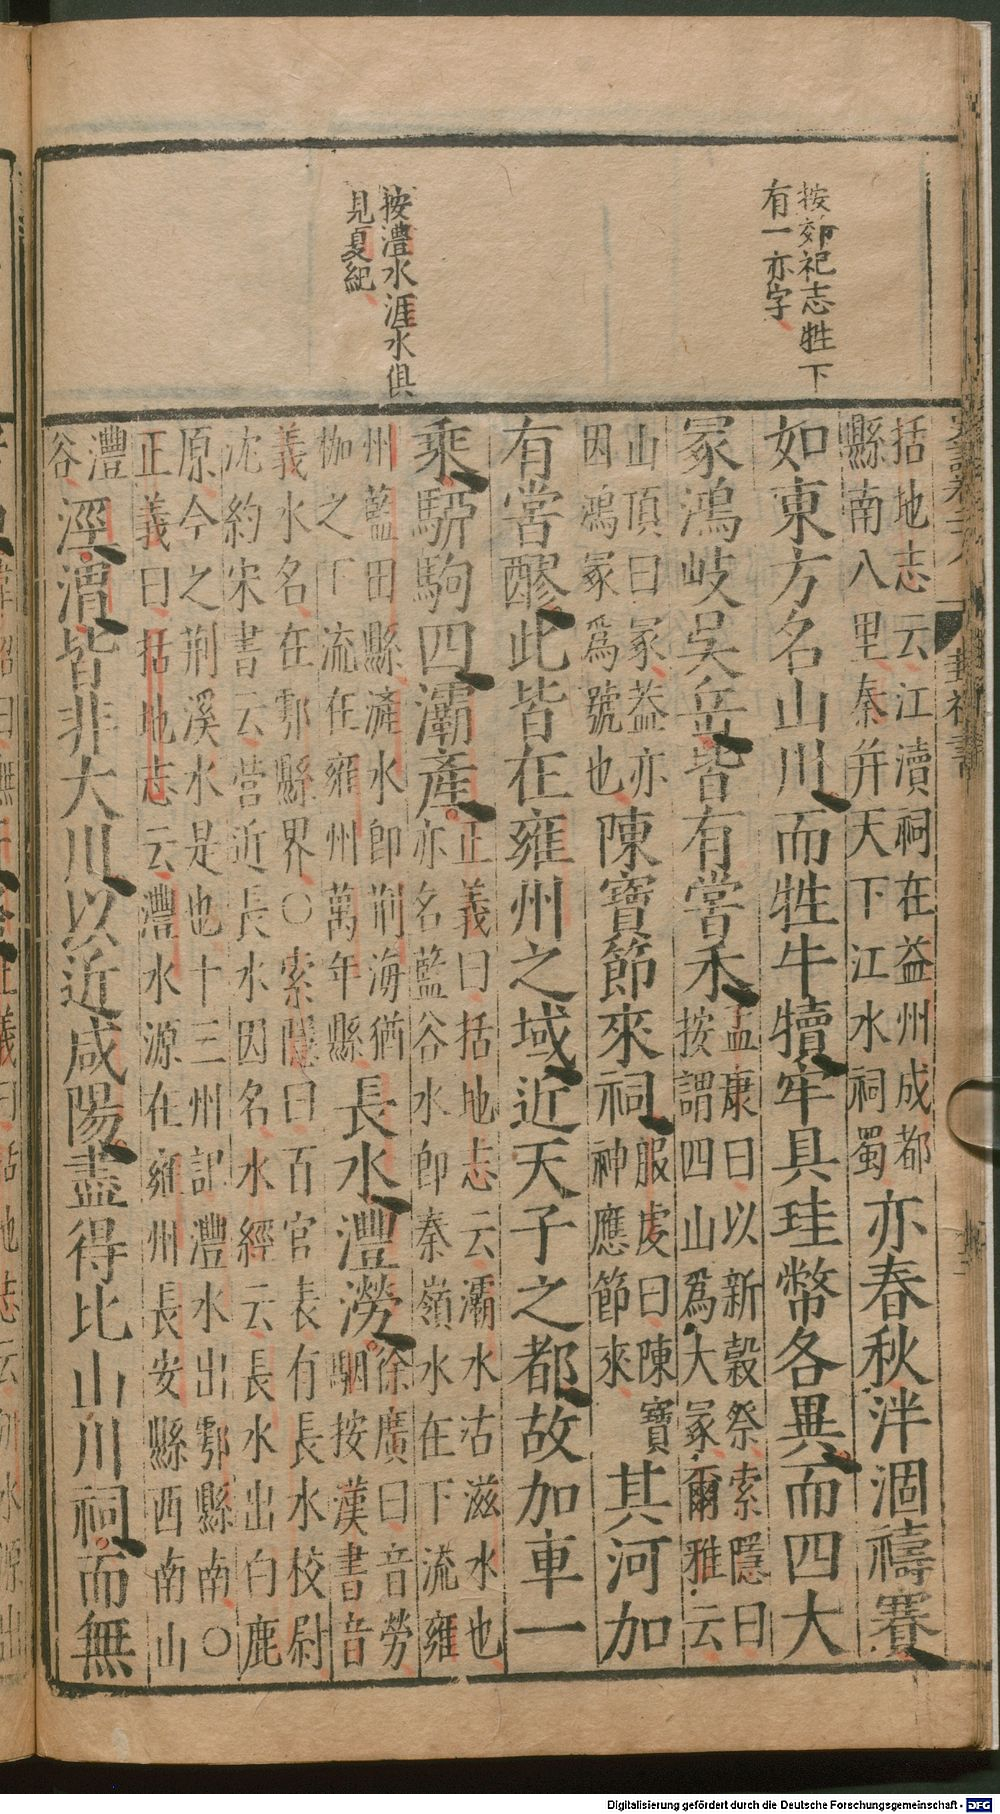 按郊祀志牲下
有一亦字
按澧水涯水俱
見夏紀
括地志云江瀆祠在益州成都
縣南八里秦并天下江水祠蜀
亦春秋泮涸禱賽
如東方名山川而牲牛犢牢具珪幣各異而四大
冢鴻岐吳岳皆有嘗禾
孟康曰以新穀祭索隱曰
按謂四山爲大冢爾雅云
山頂曰冢葢亦
因鴻冢爲號也
陳寶節來祠
服虔曰陳寶
神應節來
其河加
有嘗醪此皆在雍州之域近天子之都故加車一
乘駵駒四灞產
正義曰括地志云灞水古滋水也
亦名藍谷水卽秦嶺水在下流雍
州藍田縣滻水卽荆海猶
枷之下流在雍州萬年縣
長水灃澇
徐廣曰音勞
駰按漢書音
義水名在鄠縣界○索隱曰百官表有長水校尉
沈約宋書云營近長水因名水經云長水出白鹿
原今之荆溪水是也十三州記灃水出鄠縣南○
正義曰括地志云灃水源在雍州長安縣西南山
灃
谷
涇渭皆非大川以近咸陽盡得比山川祠而無
Digitalisierung gefördert durch die Deutsche Forschungsgemeinschaft - DFG